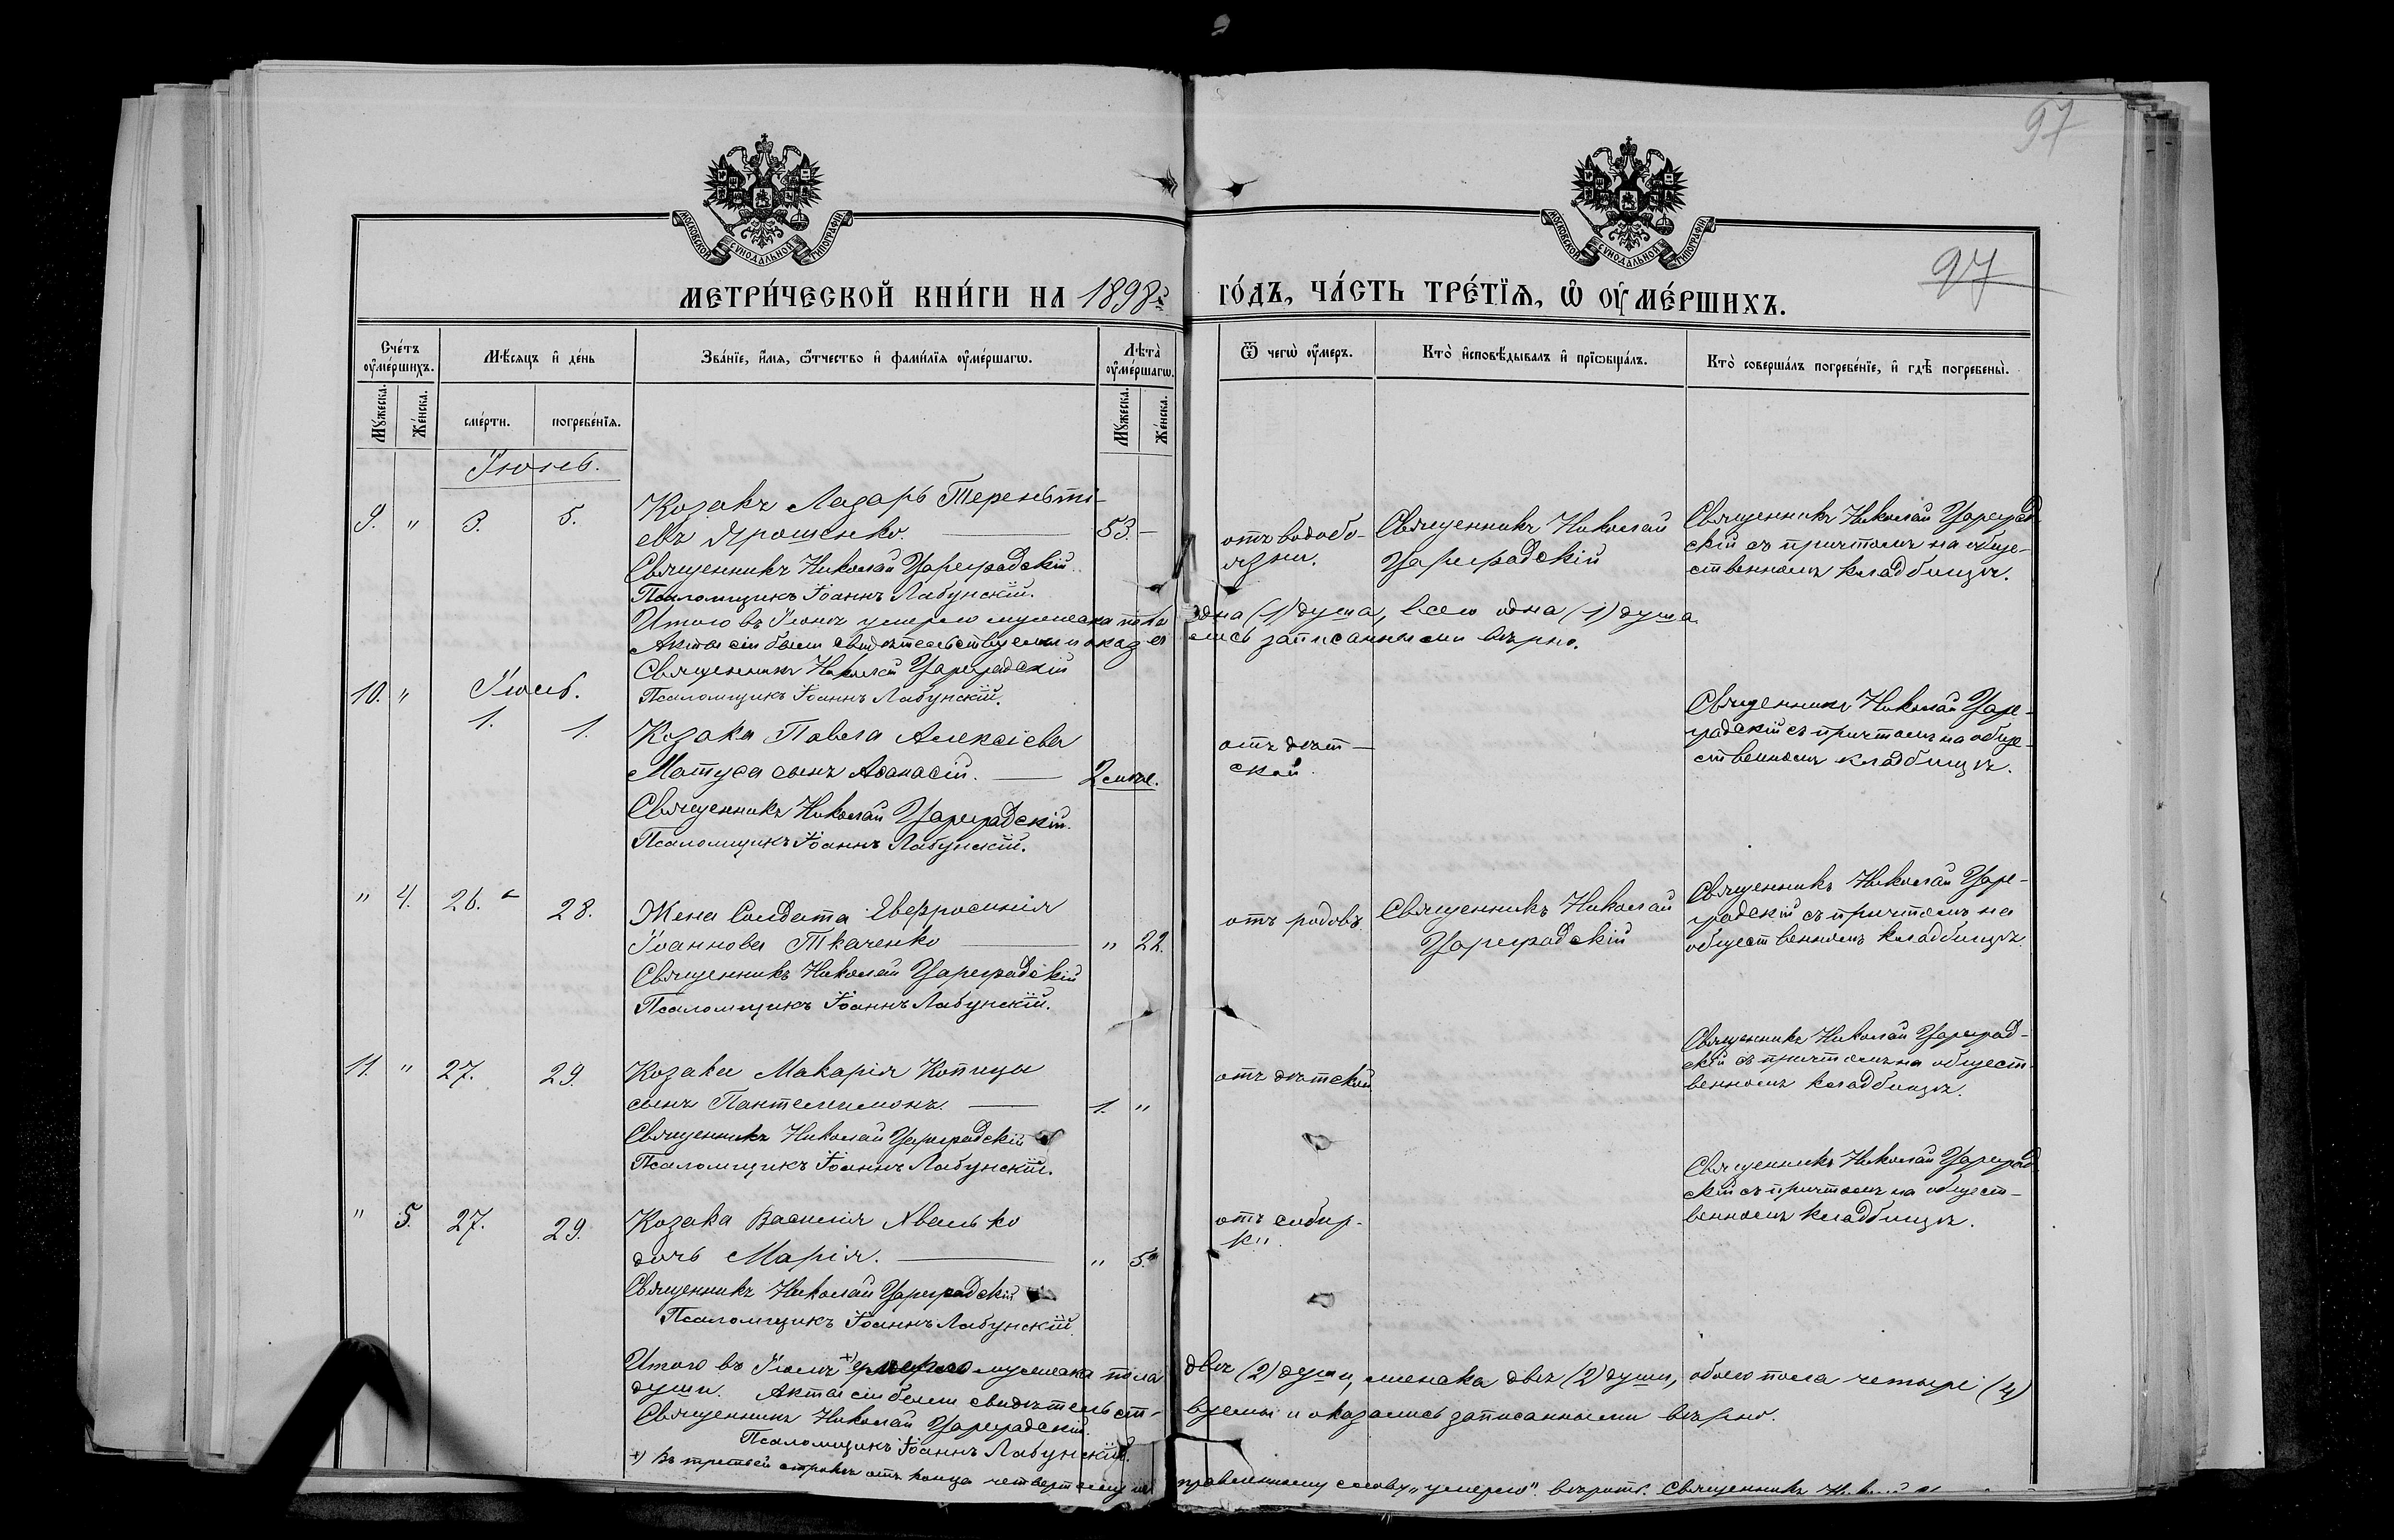 97
МОСКОВСКОЙ СѴНОДАЛЬНОЙ ТИПОГРАФІИ
МОСКОВСКОЙ СѴНОДАЛЬНОЙ ТИПОГРАФІИ
97
МЕТРИ́ЧЕСКОЙ КНИ́ГИ НА 1898й ГО́ДЪ, ЧА́СТЬ ТРЕ́ТЇѦ, Ѽ ОУ҆МЕ́РШИХЪ.
Сче́тъ оу҆ме́ршихъ.
Мѣ́сѧцъ и҆ де́нь
Зва́нїе, и҆́мѧ, ѻ҆́тчество и҆ фами́лїѧ оу҆ме́ршагѡ.
Лѣта̀ оу҆ме́ршагѡ.
Ѿ чегѡ̀ оу҆́меръ.
Кто̀ и҆сповѣ́дывалъ и҆ прїѡбща́лъ.
Кто̀ соверша́лъ погребе́нїе, и҆ гдѣ̀ погребены̀.
Мꙋ́жеска.
Же́нска.
сме́рти.
погребе́нїѧ.
Мꙋ́жеска.
Же́нска.
Іюнь.
9. " 3. 5.
Козакъ Лазарь Терентьі-
евъ Ярошенко. 53. –
Священникъ Николай Цареградскій.
Псаломщикъ Іоаннъ Лабунскій.
отъ водобо-
язни.
Священникъ Николай
Цареградскій
Священникъ Николай Цареград-
скій съ причтомъ на обще-
ственномъ кладбищѣ.
Итого въ Іюнѣ умерло мужеска пола одна (1) душа, всего одна (1) душа.
Акты сіи были свидѣтельствуемы и оказались записанными вѣрно.
Священникъ Николай Цареградскій
Псаломщикъ Іоаннъ Лабунскій.
Іюль.
10. " 1. 1.
Козака Павла Алексіева
Матуса сынъ Аѳанасій. 2 мѣс.
Священникъ Николай Цареградскій.
Псаломщикъ Іоаннъ Лабунскій.
отъ дѣт-
ской.
Священникъ Николай Царе-
градскій съ причтомъ на обще-
ственномъ кладбищѣ.
" 4. 26. 28.
Жена Солдата Евфросинія
Іоаннова Ткаченко " 22.
Священникъ Николай Цареградскій
Псаломщикъ Іоаннъ Лабунскій.
отъ родовъ
Священникъ Николай
Цареградскій
Священникъ Николай Царе-
градскій съ причтомъ на
общественномъ кладбищѣ.
11. " 27. 29.
Козака Макарія Копицы
сынъ Пантелимонъ. 1. "
Священникъ Николай Цареградскій
Псаломщикъ Іоаннъ Лабунскій.
отъ дѣтской
Священникъ Николай Цареград-
скій съ причтомъ на общест-
венномъ кладбищѣ.
" 5. 27. 29.
Козака Василія
дочь Марія. " 5.
Священникъ Николай Цареградскій
Псаломщикъ Іоаннъ Лабунскій.
отъ сибир-
ки.
Священникъ Николай Цареград-
скій съ причтомъ на общест-
венномъ кладбищѣ.
Итого въ Іюлѣ +) умерло мужеска пола двѣ (2) души, женска двѣ (2) души, обоего пола четыре (4)
души. Акты сіи были свидѣтельст-вуемы и оказались записанными вѣрно.
Священникъ Николай Цареградскій.
Псаломщикъ Іоаннъ Лабунскій.
+) Въ третьей строкѣ отъ конца четвертому ис правленному слову „умерло" вѣрить. Священникъ